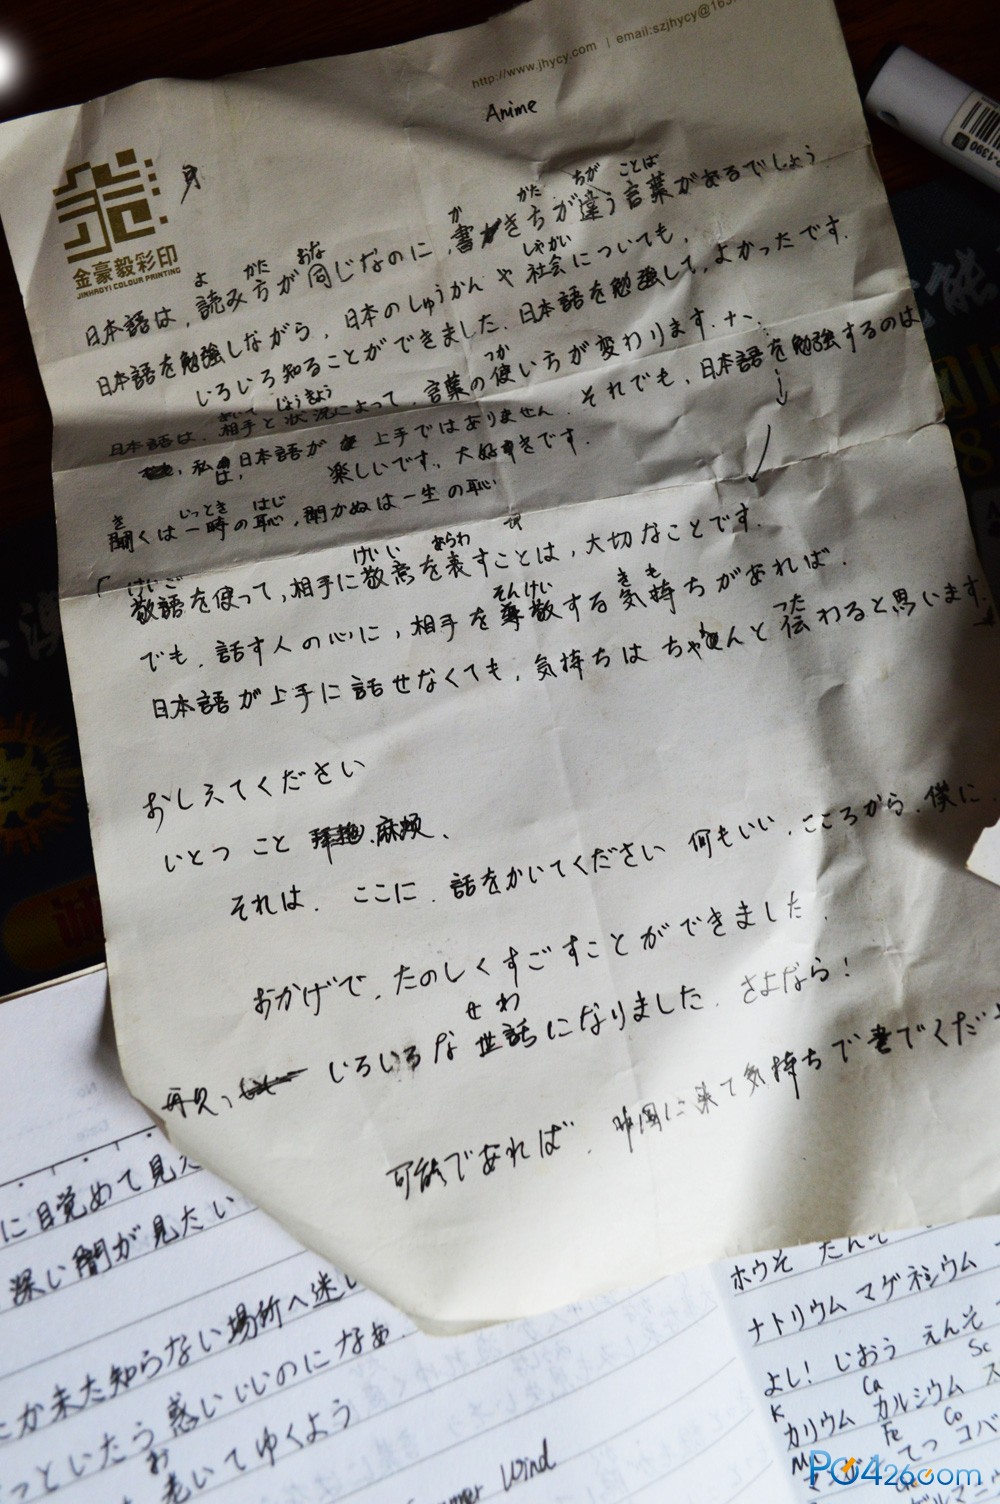 http://www.jhycy.com | email:szjhycy@163
Anime
金豪毅彩印
JINHAOYI COLOUR PRINTING
よ かた おな か かた ちが ことば
日本語は、読み方が同じなのに、書き方が違う言葉があるでしょう
しゃかい
日本語を勉強しながら、日本のしゅうかんや社会についても、
いろいろ知ることができました。日本語を勉強して、よかったです。
あいて じょうきょう つか
日本語は、相手と状況によって、言葉の使い方が変わります。
私は、日本語が上手ではありません。それでも、日本語を勉強するのは
楽しいです。大好きです。
き いっとき はじ
聞くは一時の恥、聞かぬは一生の恥
けいご けいい あらわ
敬語を使って、相手に敬意を表すことは、大切なことです。
そんけい きも
でも、話す人の心に、相手を尊敬する気持ちがあれば、
つた
日本語が上手に話せなくても、気持ちはちゃんと伝わると思います。
おしえてください
いとつ こと 麻烦、
それは、ここに、話をかいてください 何もいい、こころから、僕に
おかげで、たのしくすごすことができました。
せわ
再見、いろいろな世話になりました。さよなら！
可能であれば、 に来て気持ちで書でくだ
に目覚めて見た
深い闇が見たい
か未だ知らない場所へ迷い
っといたら惑いいいのになぁ
お
老いてゆくよう
Wind
ホウそ たんそ
ナトリウム マグネシウム
よし！ じおう えんそ
K Ca Sc
カリウム カルシウム ス
M Fe Co
マンガ てつ コバ
ゲルマニウ
PO426.com